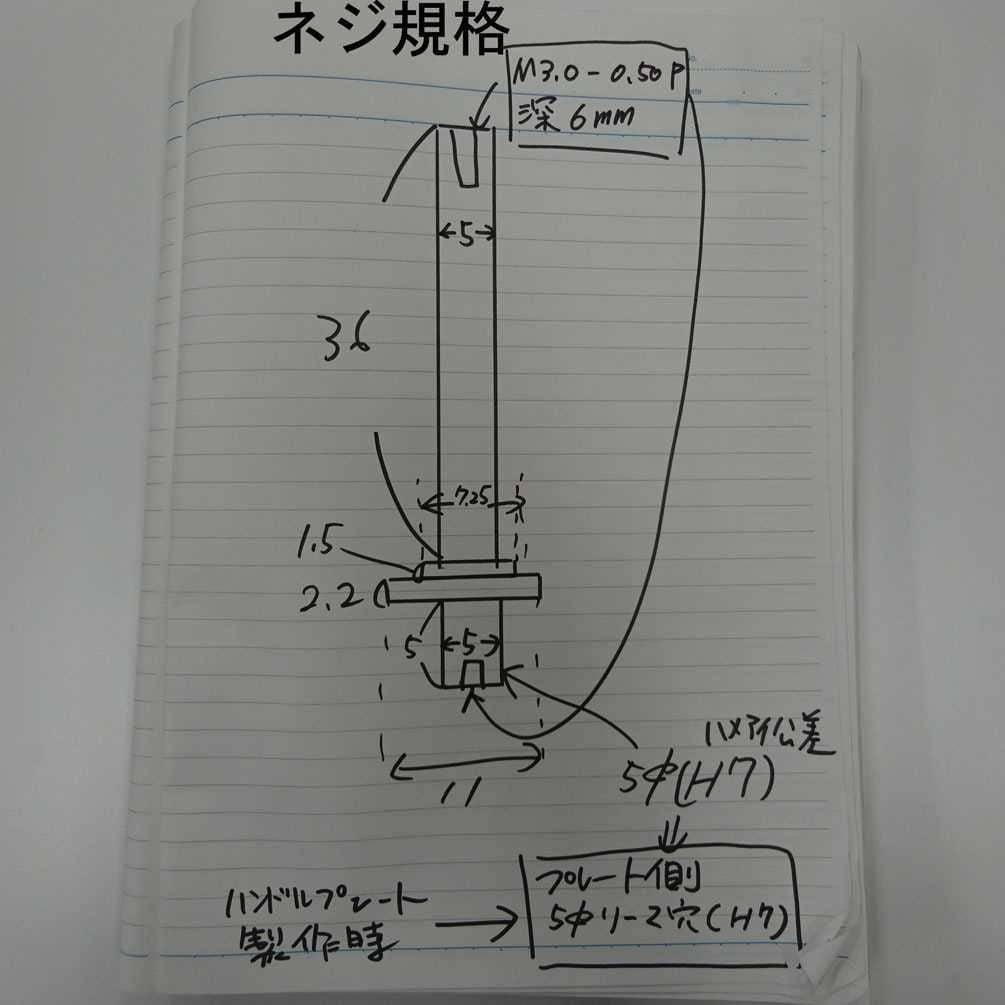 ネジ規格
M3.0-0.50P
深6mm
5
36
7.25
1.5
2.2
5
5
11
ハメアイ公差
5φ(H7)
ハンドルプレート
製作時
プレート側
5φリーマ穴(H7)